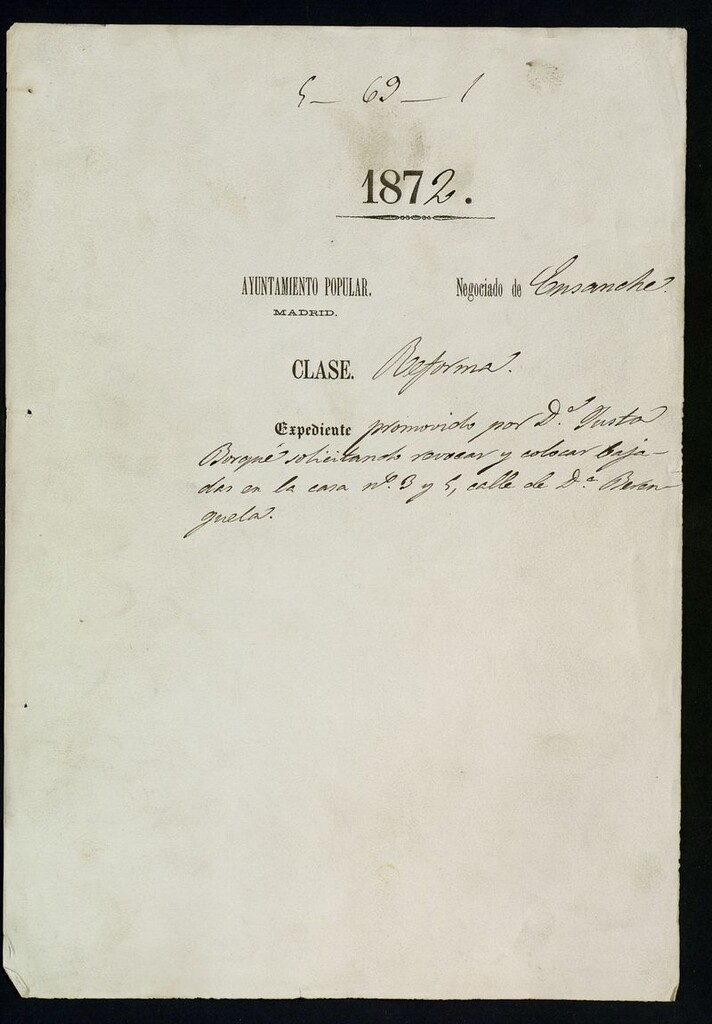 5 — 69 — 1
1872.
AYUNTAMIENTO POPULAR. Negociado de Ensanche.
MADRID.
CLASE. Reforma.
Expediente promovido por D.ª Justa
Borqué solicitando revocar y colocar baja-
das en la casa nº. 3 y 5, calle de D.ª Beren-
guela.